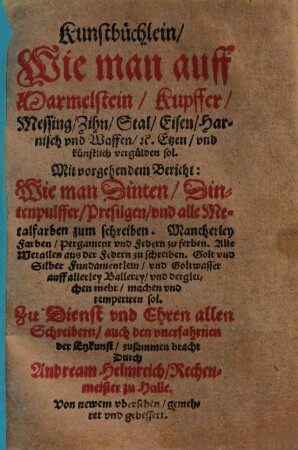 Kunstbüchlein/
Wie man auff
Marmelstein / Kupffer /
Messing/Zihn/ Stal/ Eisen/Har-
nisch vnd Waffen/ ꝛc. Etzen/ vnd
künstlich vergülden sol.
Mit vorgehendem Bericht:
Wie man Dinten/ Din-
tenpulffer/Presilgen/vnd alle Me-
talfarben zum schreiben. Mancherley
Farben/ Pergament vnd Federn zu ferben. Alle
Metallen aus der Federn zu schreiben. Golt vnd
Silber Fundamentlein/ vnd Goltwasser
auff allerley Ballerey/ vnd derglei-
chen mehr/ machen vnd
temperiren sol.
Zu Dienst vnd Ehren allen
Schreibern/ auch den vnerfahrnen
der Etzkunst/ zusammen bracht
Durch
Andream Helmreich/Rechen-
meister zu Halle.
Von newem vbersehen/ gemeh-
ret vnd gebessert.